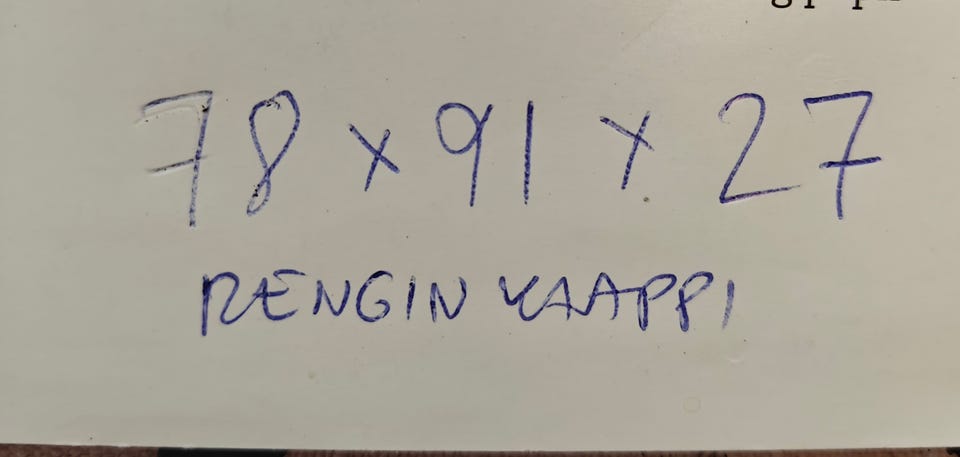 78 x 91 x 27
RENGIN KAAPPI